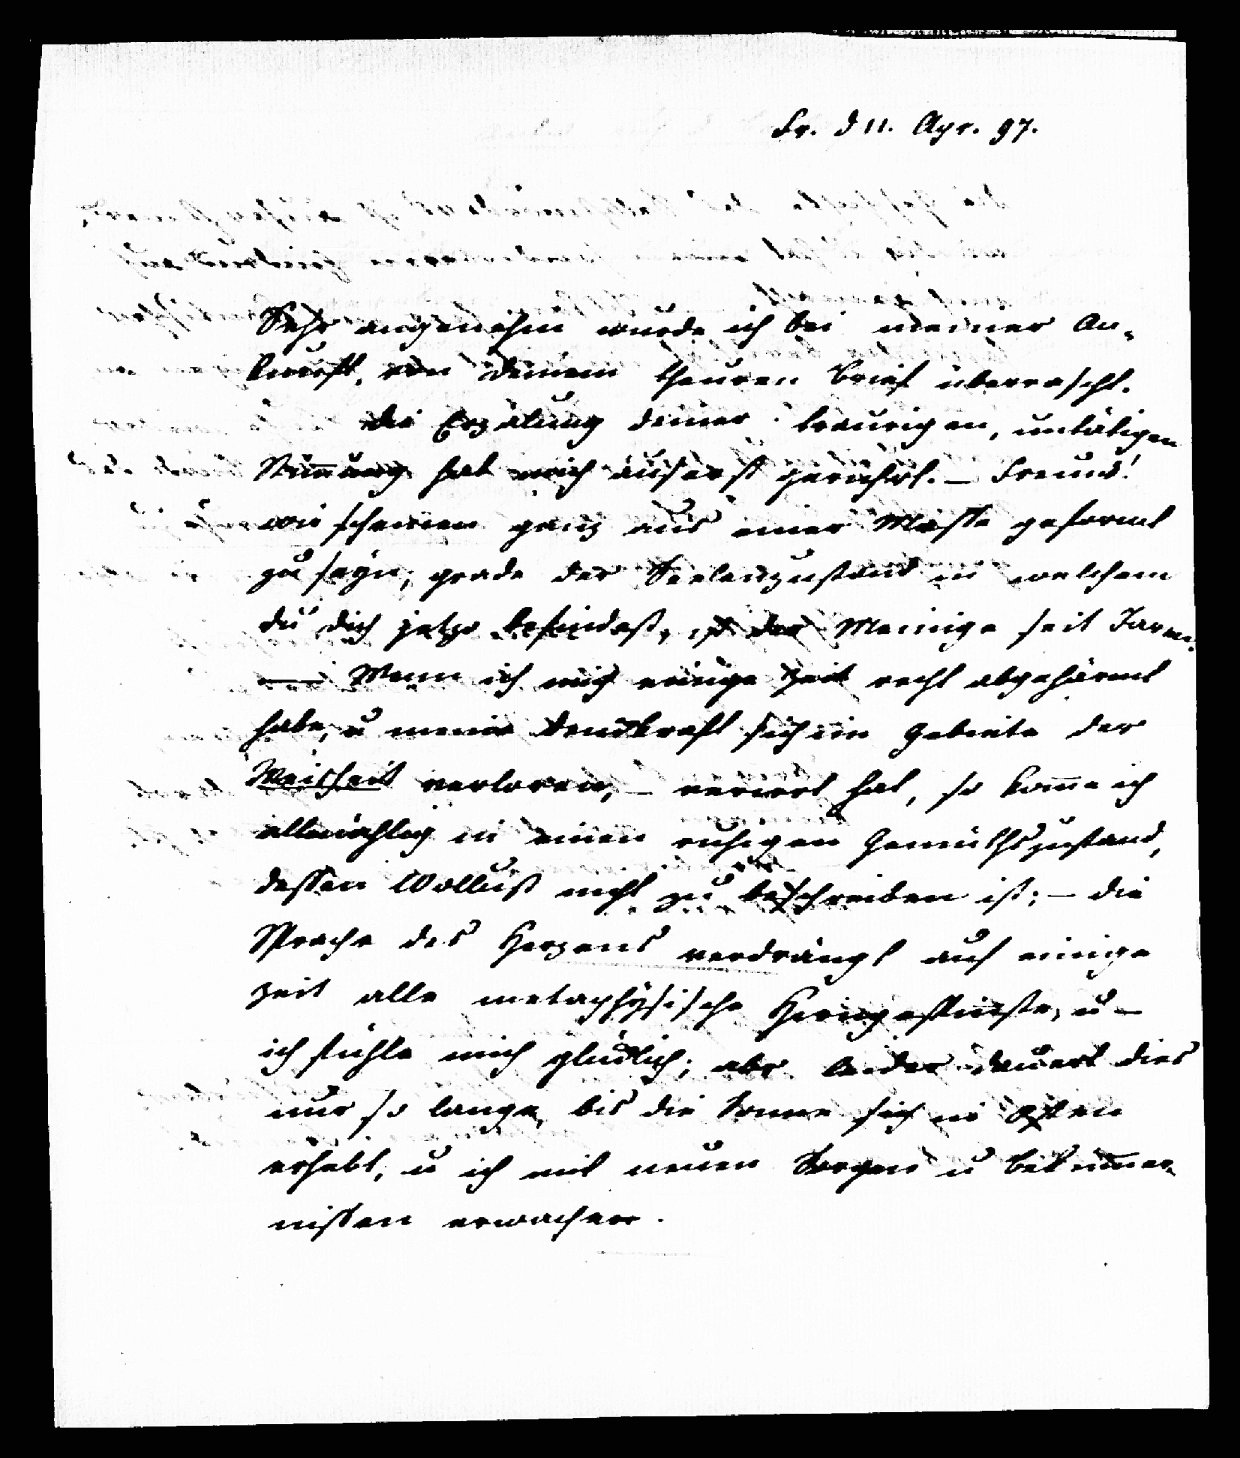 Fr. d 11. Apr. 97.
Sehr angenehm wurde ich bei meiner An-
kunft, von deinem theuren Brief überrascht.
Die Erzälung deiner traurigen, untätigen
Stim̄ung hat mich äuserst gerührt. — Freund!
wir scheinen ganz aus einer Masse geformt
zu seyn; grade der Seelenzustand in welchem
du dich jetzo befindest, ist der Meinige seit
— Wenn ich mich einige Zeit recht abgehärmt
habe, u meine Denkkraft sich im Gebiete der
Weisheit verloren, — verirrt hat, so kom̄e ich
allmählig in einen ruhigen Gemüthszustand,
dessen Wollust nicht zu beschreiben ist; — die
Sprache des Herzens verdrängt auf einige
Zeit alle metaphÿsische Hirngespinste, u —
ich fühle mich glücklich; aber leider dauert dies
nur so lange, bis die Sonne sich in Osten
erhebt, u ich mit neuen Sorgen u Beküm̄er-
nissen erwache.